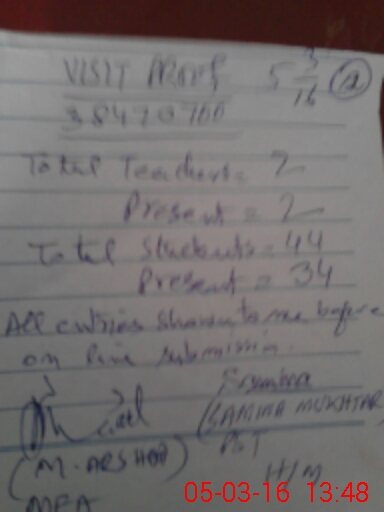 VISIT PROOF 5 3/16 a
38470700
Total Teachers = 2
Present = 2
Total Students = 44
Present = 34
All entries shown to me before
on line submission.
(SAMINA MUKHTAR
(M. ARSHAD) PST
MEA H/M
05-03-16 13:48